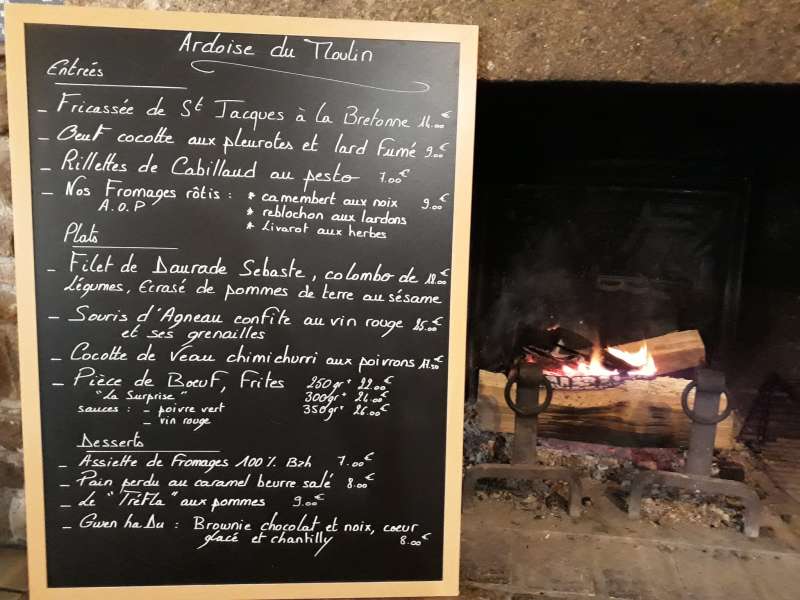 Ardoise du Moulin
Entrées
- Fricassée de St Jacques à la Bretonne 14.00€
- Oeuf cocotte aux pleurotes et lard Fumé 9.00€
- Rillettes de Cabillaud au pesto 7.00€
- Nos Fromages rôtis : * camembert aux noix 9.00€
A.O.P * reblochon aux lardons
* Livarot aux herbes
Plats
- Filet de Daurade Sebaste, colombo de 18.00€
légumes, Ecrasé de pommes de terre au sésame
- Souris d'Agneau confite au vin rouge 25.00€
et ses grenailles
- Cocotte de Veau chimichurri aux poivrons 17.50€
- Pièce de Boeuf, Frites 250gr+ 22.00€
"La Surprise" 300gr+ 24.00€
sauces : - poivre vert 350gr+ 26.00€
- vin rouge
Desserts
- Assiette de Fromages 100% Bzh 7.00€
- Pain perdu au caramel beurre salé 8.00€
- Le "TréMa" aux pommes 9.00€
- Gwen ha Du : Brownie chocolat et noix, coeur
glacé et chantilly 8.00€